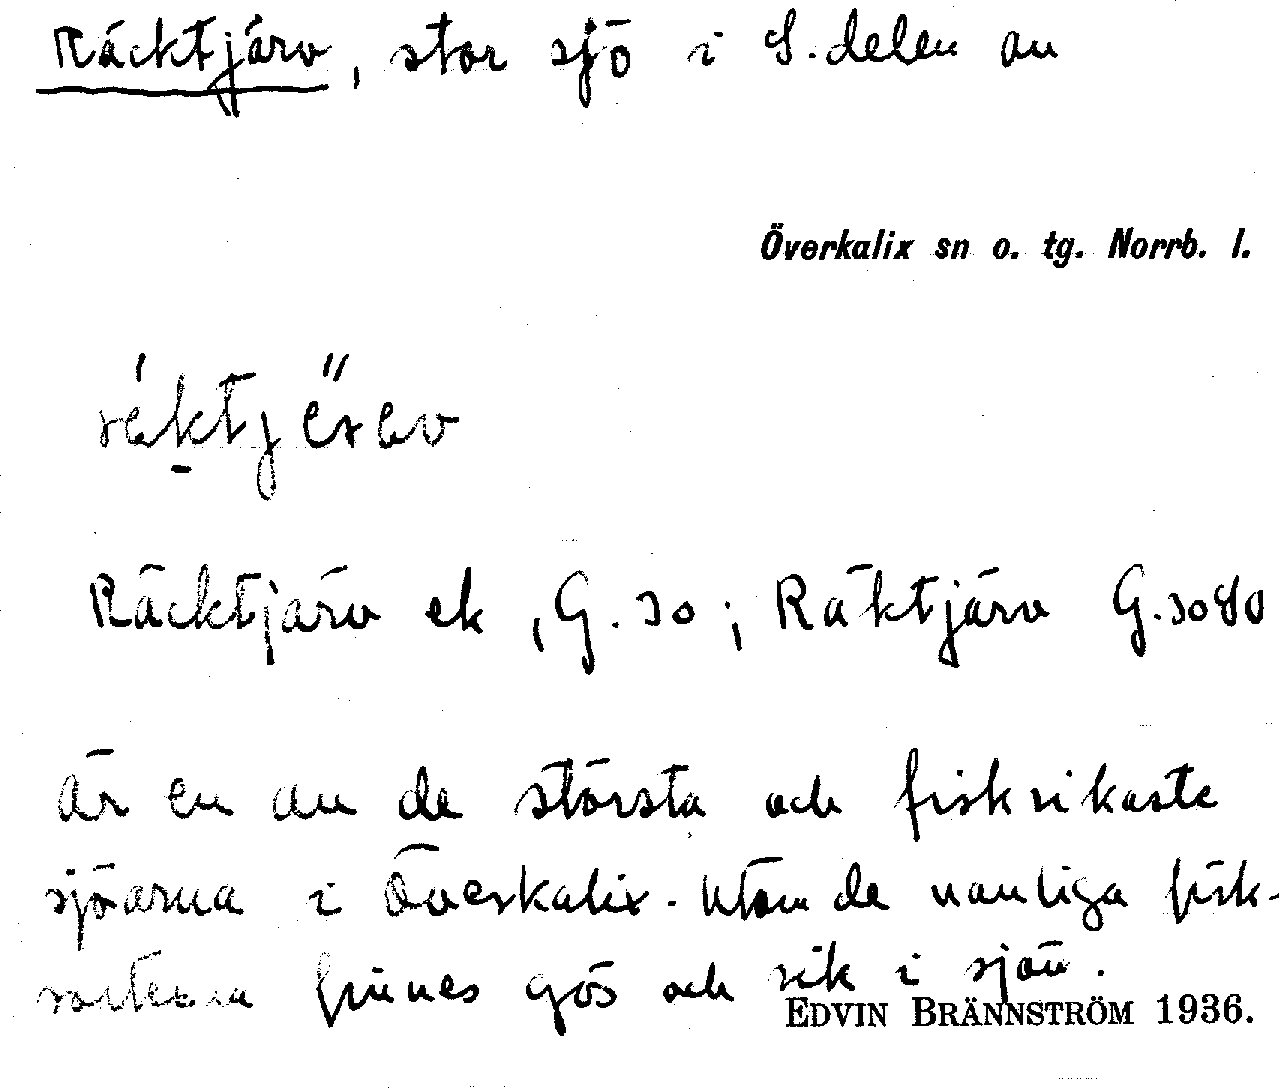 Räcktjärv, stor sjö i S. delen av
Överkalix sn o. tg. Norrb. l.
Räcktjärv ek, G. 30; Räktjärv G. 3080
Är en av de största och fiskrikaste
sjöarna i Överkalix. Utom de vanliga fisk-
sorterna finnes gös och sik i sjön.
EDVIN BRÄNNSTRÖM 1936.